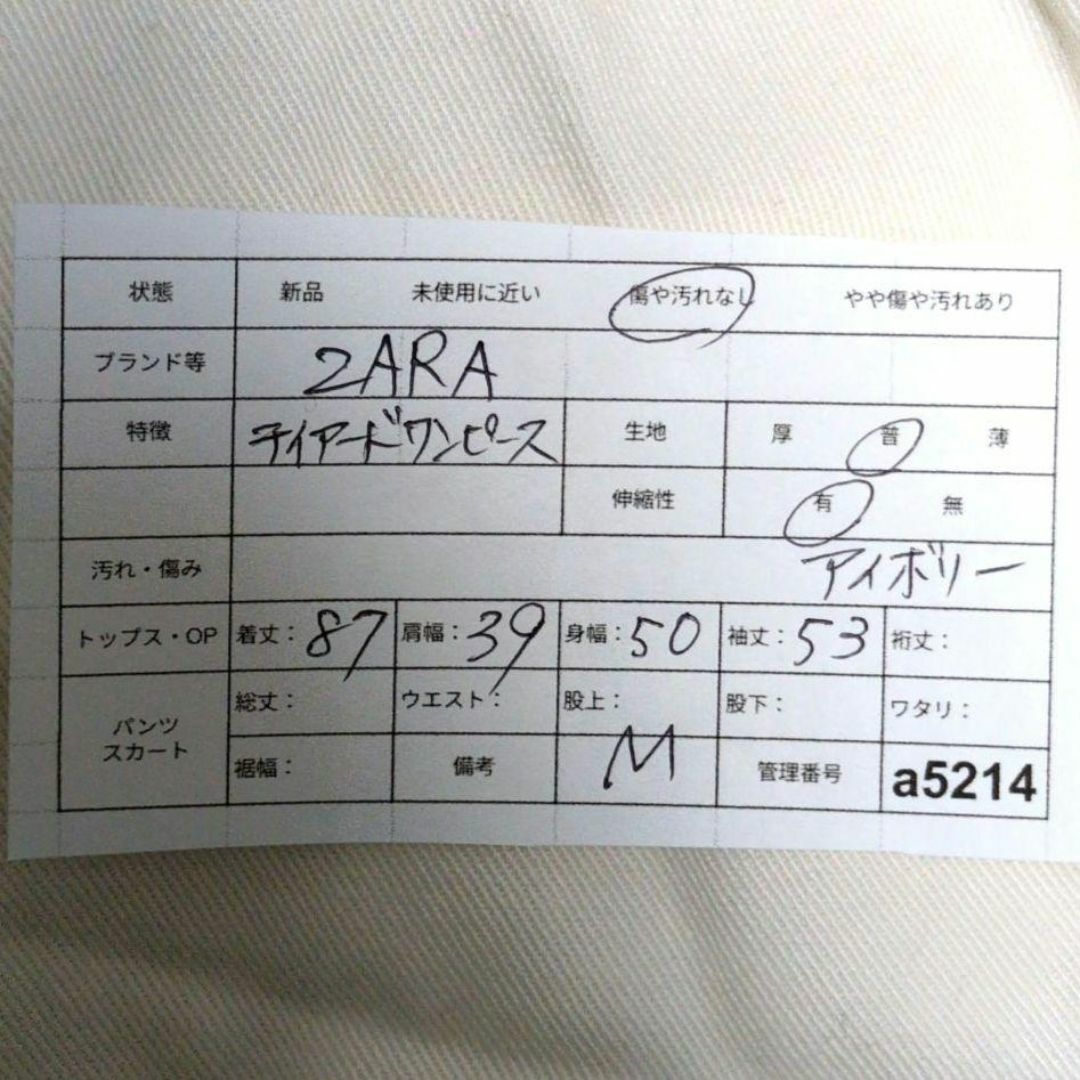 状態 新品 未使用に近い 傷や汚れなし やや傷や汚れあり
ブランド等 ZARA
特徴 テイアードワンピース 生地 厚 普 薄
伸縮性 有 無
汚れ・傷み アイボリー
トップス・OP 着丈：87 肩幅：39 身幅：50 袖丈：53 裄丈：
パンツ
スカート
総丈： ウエスト： 股上： 股下： ワタリ：
裾幅： 備考 M 管理番号 a5214